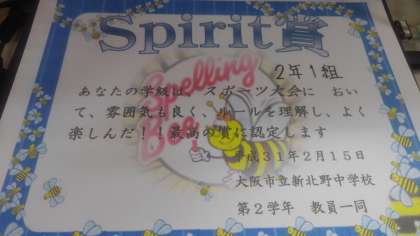 Spirit賞
2年1組
あなたの学級は、スポーツ大会に おい
て、雰囲気も良く、ルールを理解し、よく
楽しんだ！！最高の賞に認定します
Spelling
Bee
平成31年2月15日
大阪市立新北野中学校
第2学年 教員一同